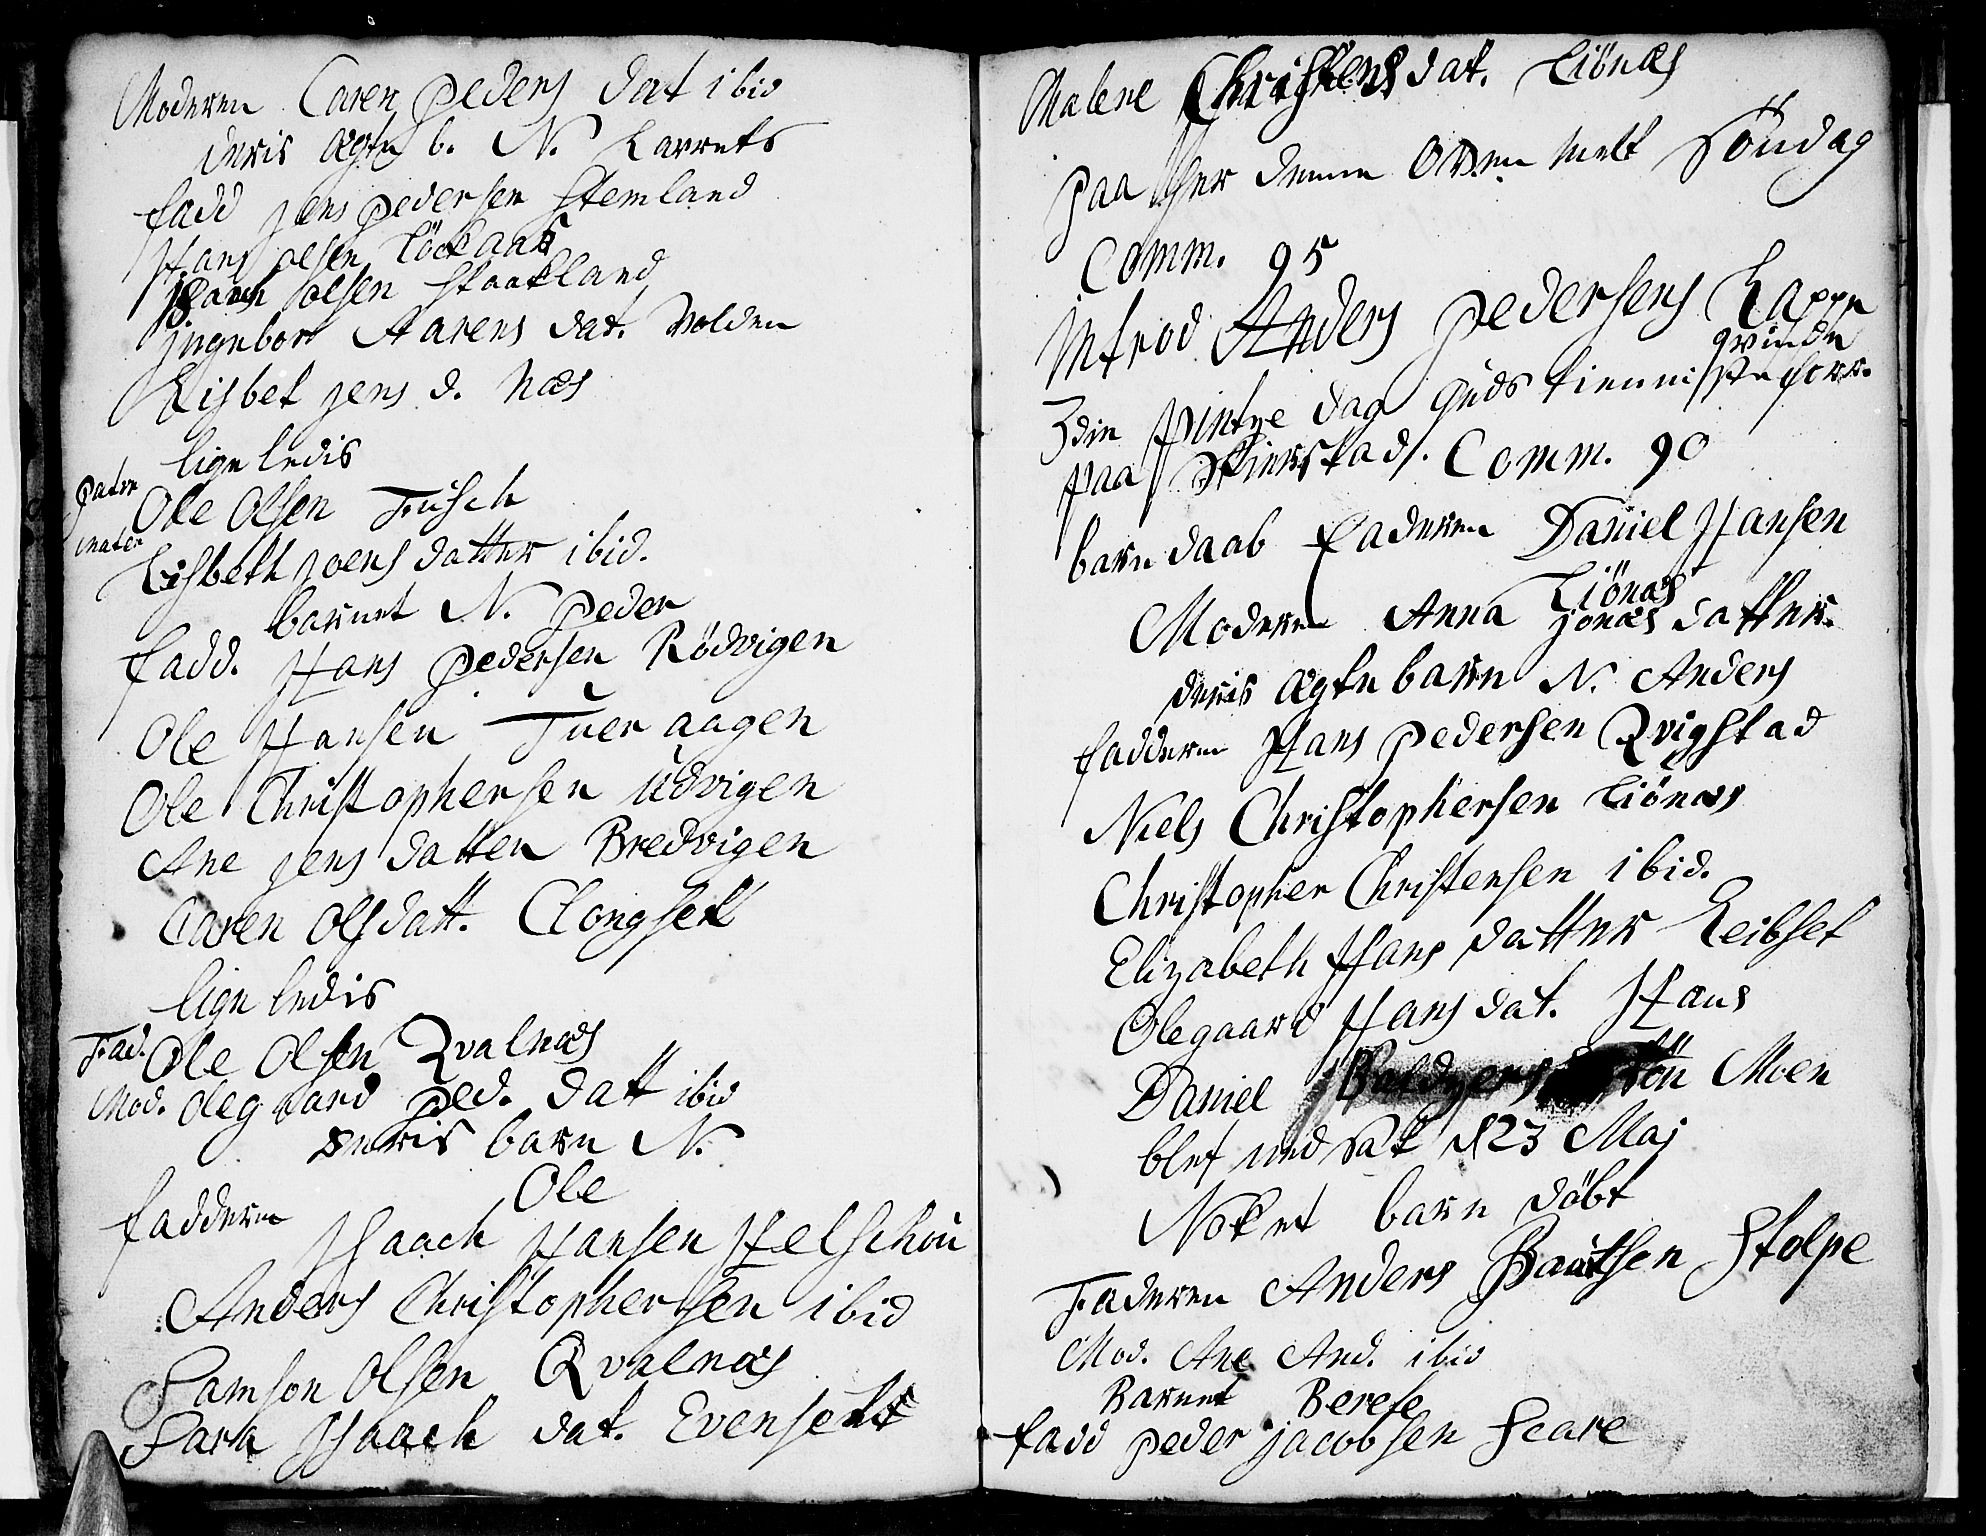 Moderen Caren Peders dat ibid
deris ægte b. N. Larrents
fadd Jens Pedersen Stemland
Hans Olsen Löckaas
Isaach Olsen Staatland
Ingebor Aarens dat. Volden
Lisbet Jens d. Næs
lige ledis
pater Ole Olsen Fusch
mater Lisbeth Joens datter ibid.
barnet N. Peder
fadd. Hans Pedersen Rödvigen
Ole Hansen Tueraagen
Ole Christophersen Udvigen
Ane Jens datter Bredvigen
Caren Ols datt. Clongset
lige ledis
Fad. Ole Olsen Qvalnæs
Mod. Olegaard Ped. datt ibid
deris barn N.
Ole
fadderne Isaach Hansen Helschou
Anders Christophersen ibid
Samson Olsen Qvalnæs
Sara Isaach dat. Evensett
Malene Christens dat. Liönæs
paa her denne Söndag
Comm. 95
Introd Anders Pedersens Lappe
qvinde
3die Pintze dag Guds tienniste forr.
paa Skierstad. Comm. 90
barn daab Faderen Daniel Hansen
Liönæs
Moderen Anna Jonæs datter.
deris ægte barn N. Anders
fadderne Hans Pedersen Qvigstad
Niels Christophersen Liönæs
Christopher Christensen ibid.
Elizabeth Hans datter Leibset
Olegaard Hans dat. Hans
Daniel Baldzers Sön Moen
blef ned sat d 23 Maj
Noket barn döbt
Faderen Anders Baartsen Stolpe
Mod. Ane And. ibid
Barnet Berete
fadd Peder Jacobsen Seare